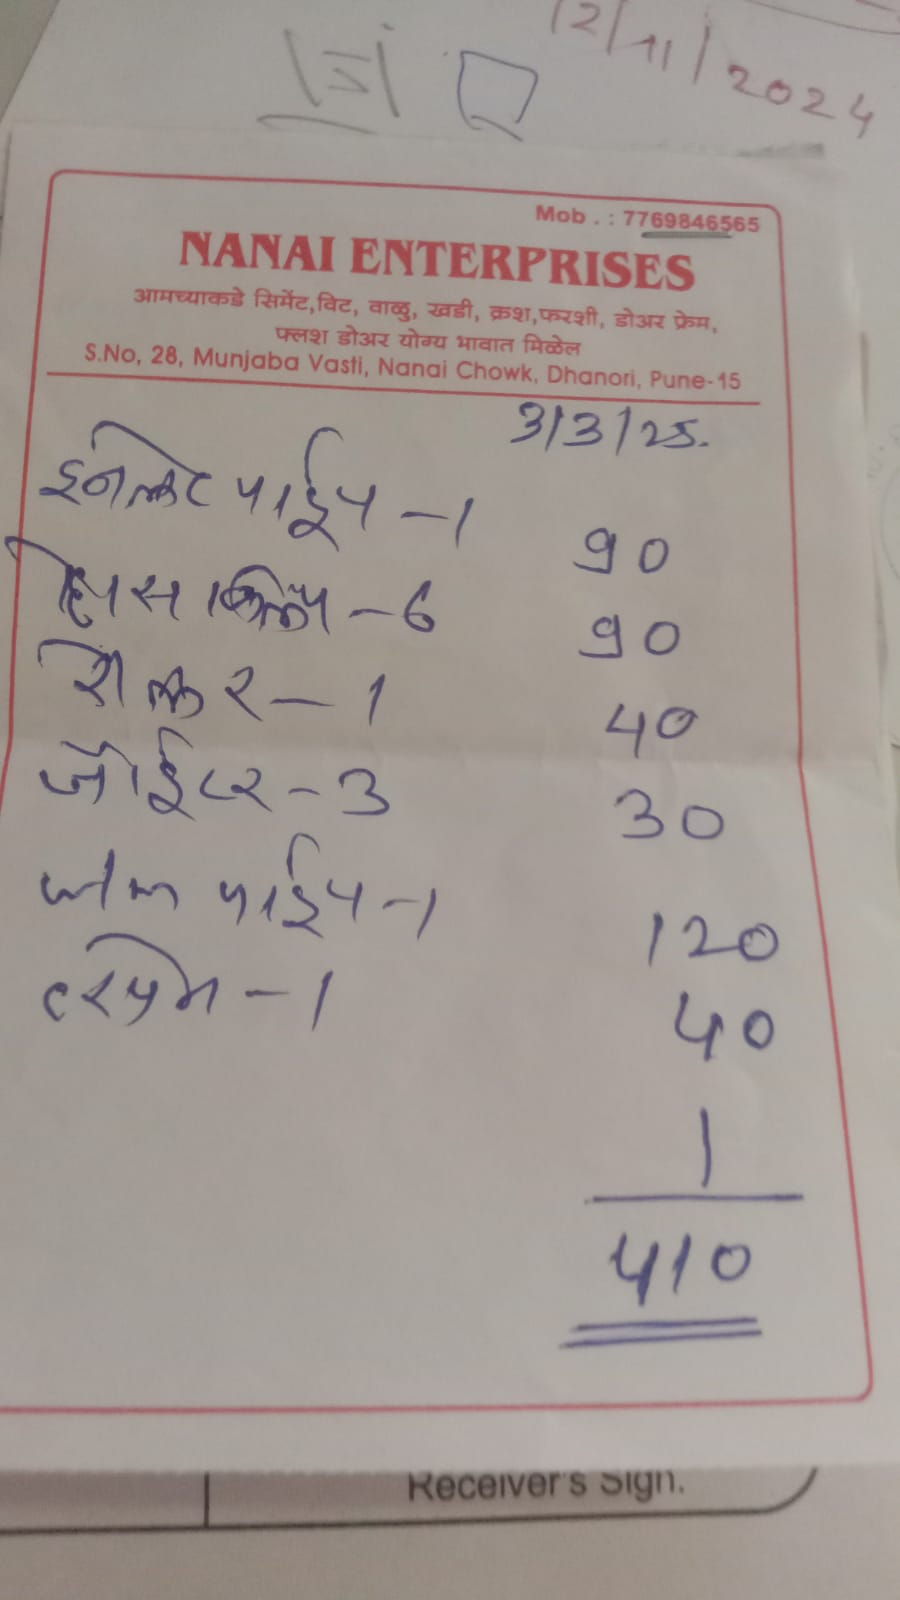 12/11/2024
Mob . : 7769846565
NANAI ENTERPRISES
आमच्याकडे सिमेंट,विट, वाळु, खडी, क्रश,फरशी, डोअर फ्रेम,
फ्लश डोअर योग्य भावात मिळेल
S.No, 28, Munjaba Vasti, Nanai Chowk, Dhanori, Pune-15
3/3/25.
इनलेट पाईप - 1 90
- 6 90
- 1 40
जॉईटर - 3 30
पाईप - 1 120
- 1 40
1
410
Receiver's Sign.